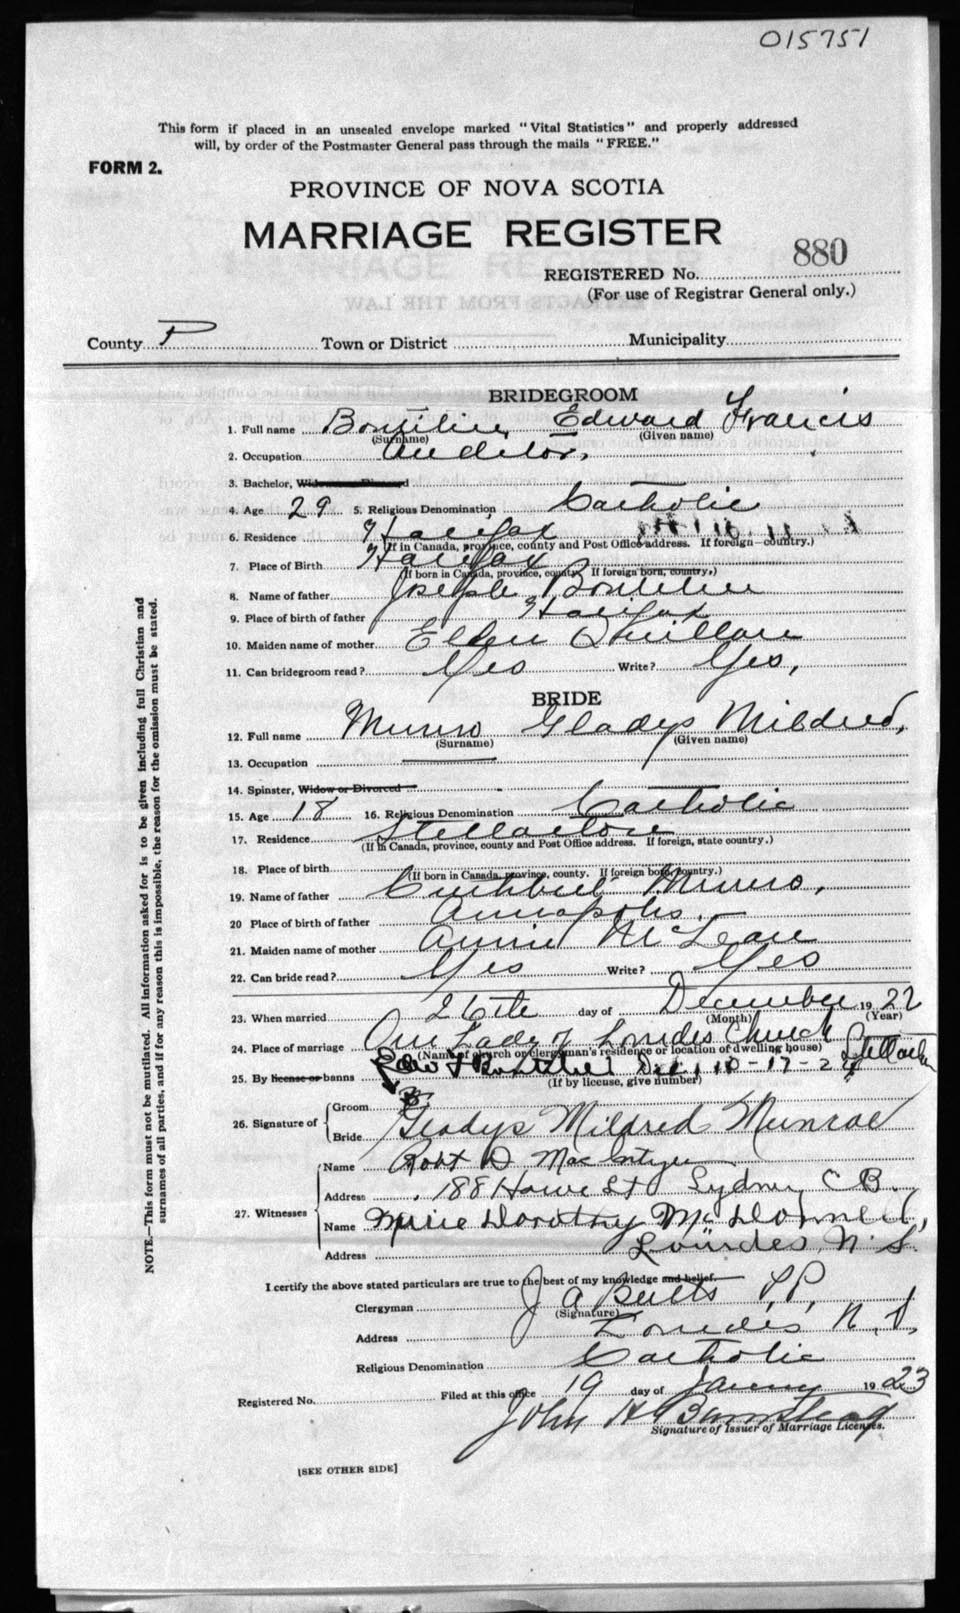 015751
This form if placed in an unsealed envelope marked "Vital Statistics" and properly addressed
will, by order of the Postmaster General pass through the mails "FREE."
FORM 2.
PROVINCE OF NOVA SCOTIA
MARRIAGE REGISTER
REGISTERED No. 880
(For use of Registrar General only.)
County P Town or District Municipality
BRIDEGROOM
1. Full name Boutilier Edward Francis
(Surname) (Given name)
2. Occupation Auditor.
3. Bachelor, Widower or Divorced
4. Age 29 5. Religious Denomination Catholic
6. Residence Halifax
(If in Canada, province, county and Post Office address. If foreign—country.)
7. Place of Birth Halifax
(If born in Canada, province, county. If foreign born, country,)
8. Name of father Joseph Boutilier
9. Place of birth of father Halifax
10. Maiden name of mother Ellen
11. Can bridegroom read? Yes Write? Yes,
BRIDE
12. Full name Munro Gladys Mildred,
(Surname) (Given name)
13. Occupation
14. Spinster, Widow or Divorced
15. Age 18 16. Religious Denomination Catholic
17. Residence Stellarton
(If in Canada, province, county and Post Office address. If foreign, state country.)
18. Place of birth
(If born in Canada, province, county. If foreign born, country.)
19. Name of father Cuthbert Munro,
20 Place of birth of father Annapolis.
21. Maiden name of mother Annie McLean
22. Can bride read? Yes Write? Yes
23. When married 26th day of December 1922
(Month) (Year)
24. Place of marriage Our Lady of Lourdes Church Stellarton
(Name of church or clergyman's residence or location of dwelling house)
25. By license or banns Dec, 10-17-24
(If by license, give number)
26. Signature of Groom Edw F Boutilier
Bride Gladys Mildred Munroe
27. Witnesses
Name Robt D. MacIntyre
Address 188 Howe St Sydney C B.
Name Marie Dorothy McDonnell,
Address Lourdes, N. S.
I certify the above stated particulars are true to the best of my knowledge and belief.
Clergyman J A Butts P.P.
(Signature)
Address Lourdes N. S.
Religious Denomination Catholic
Registered No. Filed at this office 19 day of January 1923
John H
Signature of Issuer of Marriage Licenses.
[SEE OTHER SIDE]
NOTE.—This form must not be mutilated. All information asked for is to be given including full Christian and
surnames of all parties, and if for any reason this is impossible, the reason for the omission must be stated.